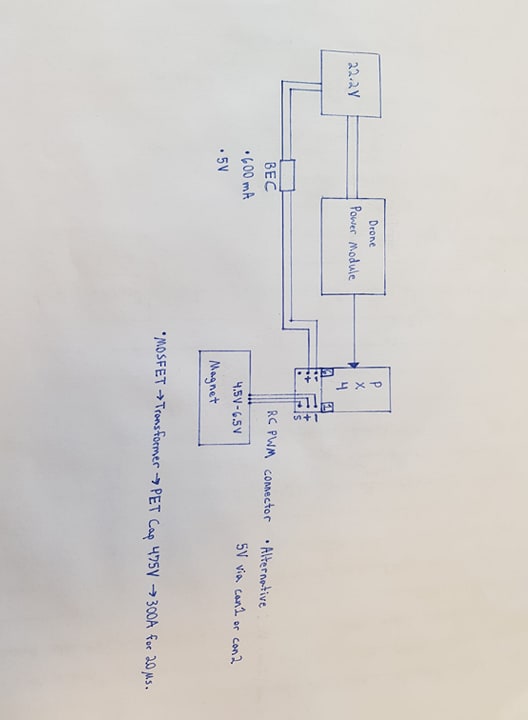 22.2V
Drone
Power Module
P
X
4
6
1
-
+
-
+
S
BEC
• 600 mA
• 5V
RC PWM connector
• Alternative
5V via can1 or can2
4.5V-6.5V
Magnet
• MOSFET → Transformer → PET Cap 475V → 300A for 20 µs.